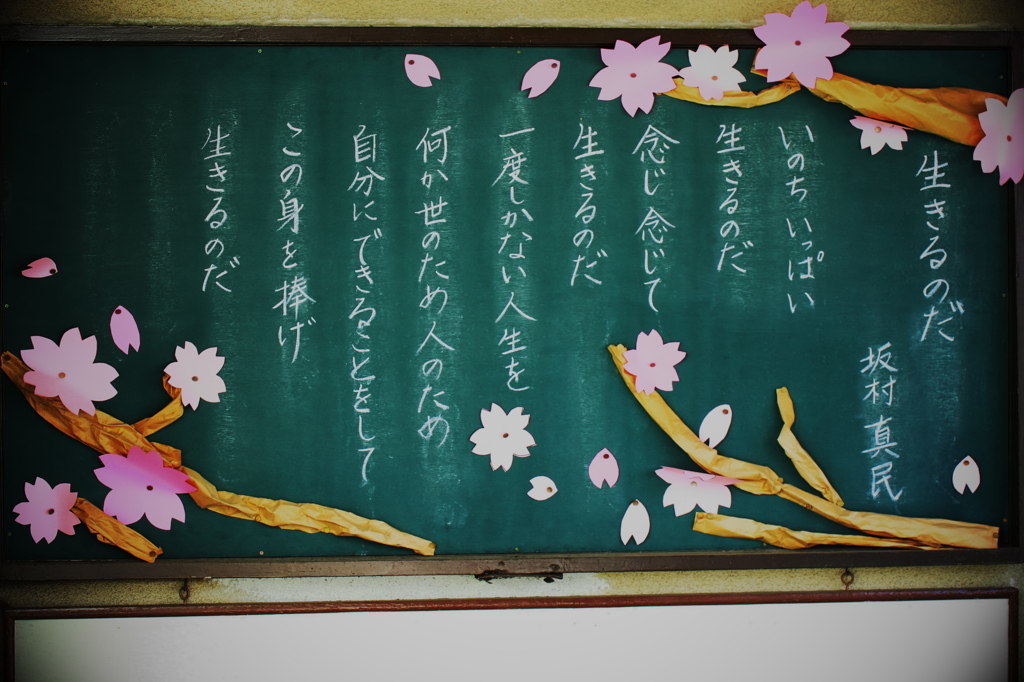 生きるのだ
坂村真民
いのちいっぱい
生きるのだ
念じ念じて
生きるのだ
一度しかない人生を
何か世のため人のため
自分にできることをして
この身を捧げ
生きるのだ